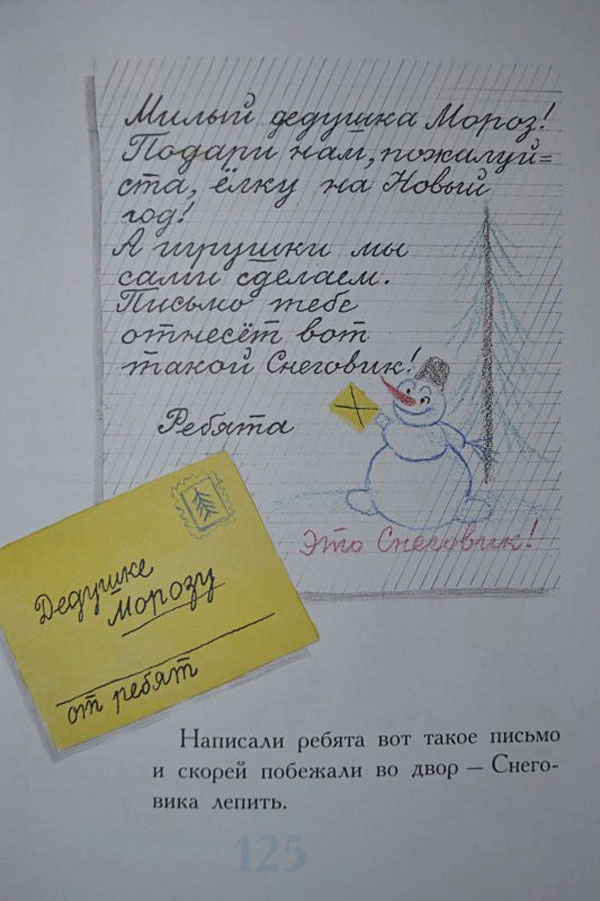 Милый дедушка Мороз!
Подари нам, пожалуй=
ста, ёлку на Новый
год!
А игрушки мы
сами сделаем.
Письмо тебе
отнесёт вот
такой Снеговик!
Ребята
Это Снеговик!
Дедушке
Морозу
от ребят
Написали ребята вот такое письмо
и скорей побежали во двор — Снего-
вика лепить.
125